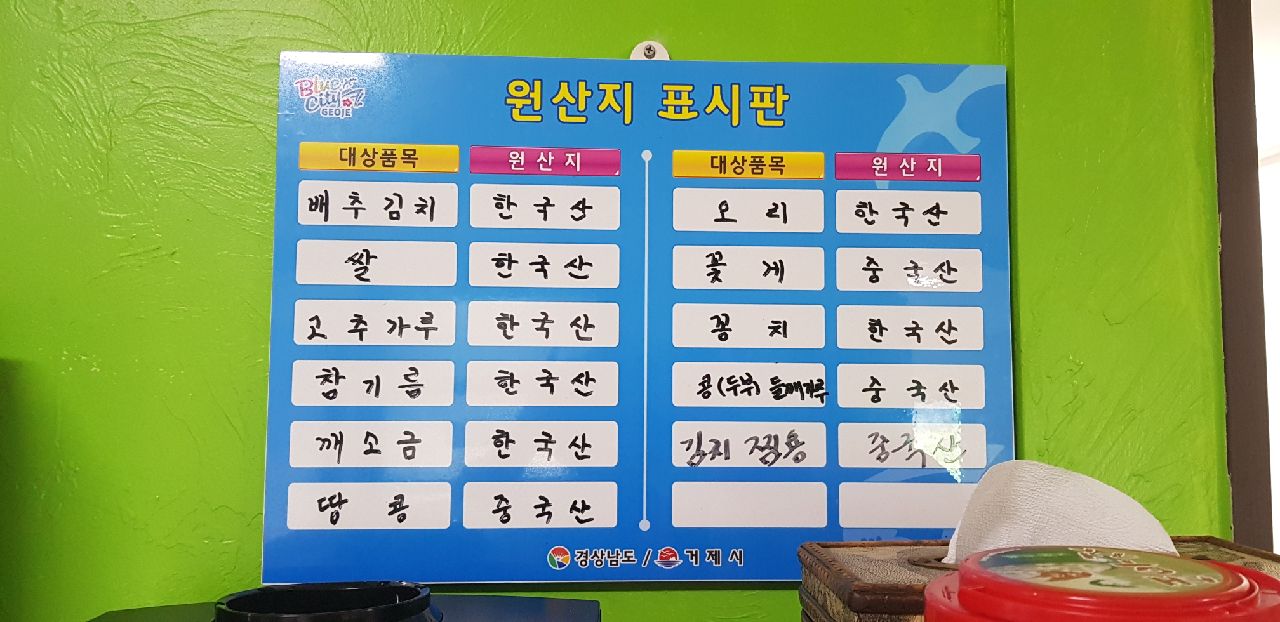 Blue City GEOJE
원산지 표시판
대상품목 원산지
배추김치 한국산
쌀 한국산
고추가루 한국산
참기름 한국산
깨소금 한국산
땅콩 중국산
대상품목 원산지
오리 한국산
꽃게 중국산
꽁치 한국산
콩(두부) 들깨가루 중국산
김치 찜용 중국산
경상남도 / 거제시